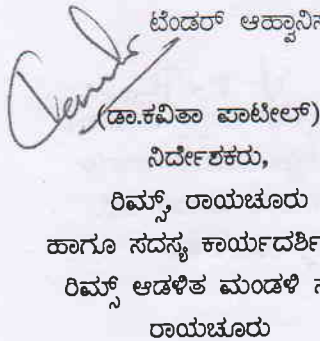 ಟೆಂಡರ್ ಆಹ್ವಾನಿಸ
(ಡಾ.ಕವಿತಾ ಪಾಟೀಲ್)
ನಿರ್ದೇಶಕರು,
ರಿಮ್ಸ್, ರಾಯಚೂರು
ಹಾಗೂ ಸದಸ್ಯ ಕಾರ್ಯದರ್ಶಿ
ರಿಮ್ಸ್ ಆಡಳಿತ ಮಂಡಳಿ ಸ
ರಾಯಚೂರು